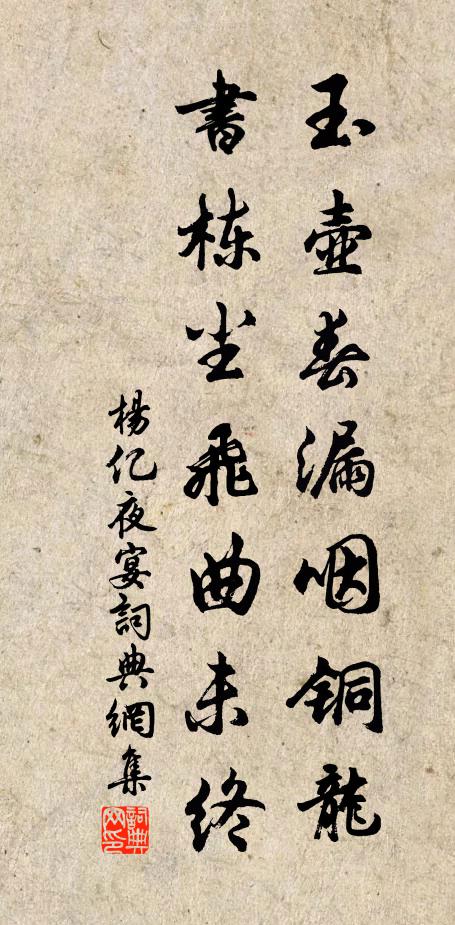 玉壺春漏咽铜龍
書栋尘飛曲未终
楊亿夜宴詞典網集
詞典网印